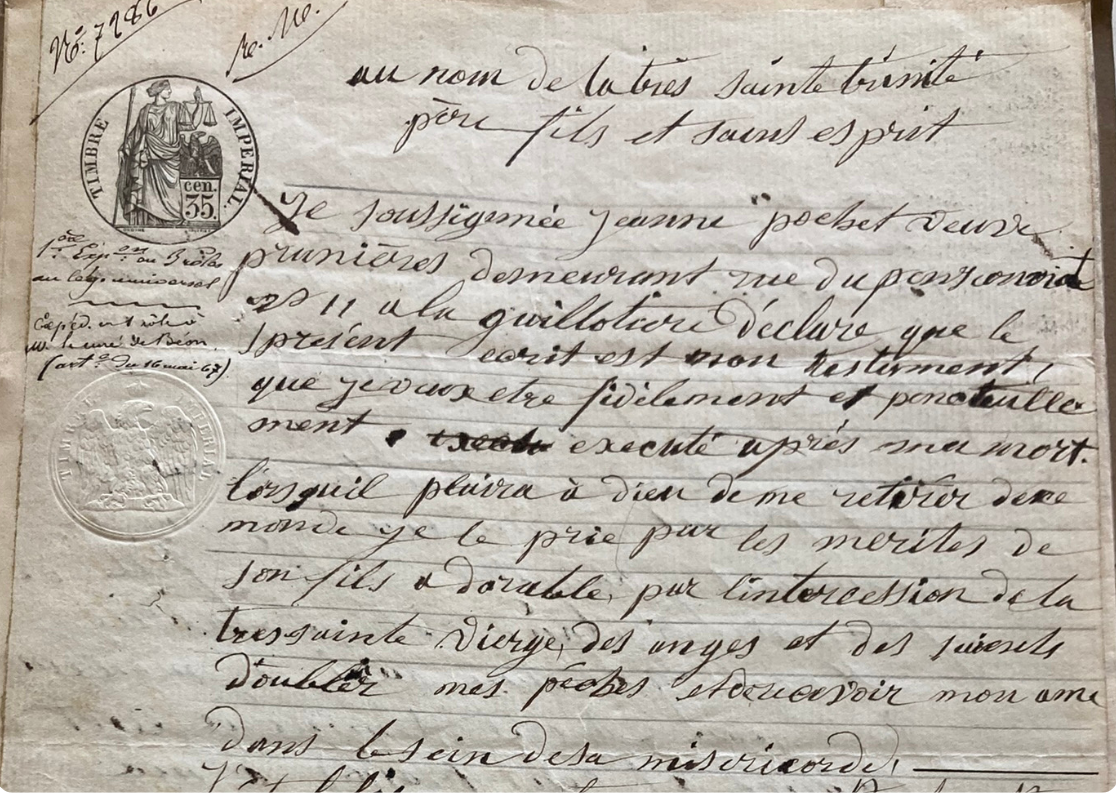 No: 7286
au nom de la très sainte trinité
père fils et saint esprit
TIMBRE IMPERIAL
cen.
35.
Je soussignée jeanne pochet veuve
prunières demeurant rue du pont
no 11 a la guillotière déclare que le
présent ecrit est mon testament,
que je veux etre fidèlement et ponctuelle
ment executé après ma mort.
lorsquil plaira à dieu de me retirer de ce
monde je le prie par les merites de
son fils adorable, par lintercession de la
tres sainte vierge, des anges et des saients
doublier mes péchés et de recevoir mon ame
dans le sein de sa misericorde,
1ère Exp.on en 3 rôles
au leg. universel
Expéd. en 1 rôle à
M. le curé de
(art.e du 16 mai 67)
TIMBRE IMPERIAL